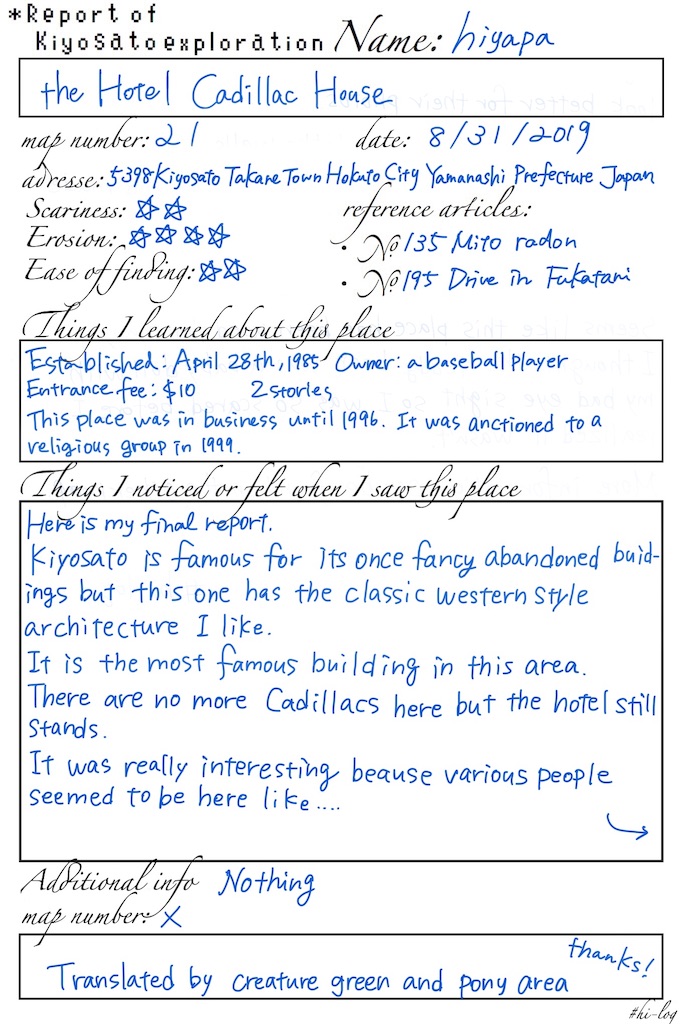 *Report of
Kiyosato exploration Name: hiyapa
the Hotel Cadillac House
map number: 21 date: 8/31/2019
adresse: 5398 Kiyosato Takane Town Hokuto City Yamanashi Prefecture Japan
Scariness: ☆☆ reference articles:
Erosion: ☆☆☆☆ • No135 Mito radon
Ease of finding: ☆☆ • No195 Drive in Fukatani
Things I learned about this place
Established: April 28th, 1985 Owner: a baseball player
Entrance fee: $10 2 stories
This place was in business until 1996. It was anctioned to a
religious group in 1999.
Things I noticed or felt when I saw this place
Here is my final report.
Kiyosato is famous for its once fancy abandoned buid-
ings but this one has the classic western style
architecture I like.
It is the most famous building in this area.
There are no more Cadillacs here but the hotel still
stands.
It was really interesting beause various people
seemed to be here like....
→
Additional info Nothing
map number: X
thanks!
Translated by creature green and pony area
#hi-log